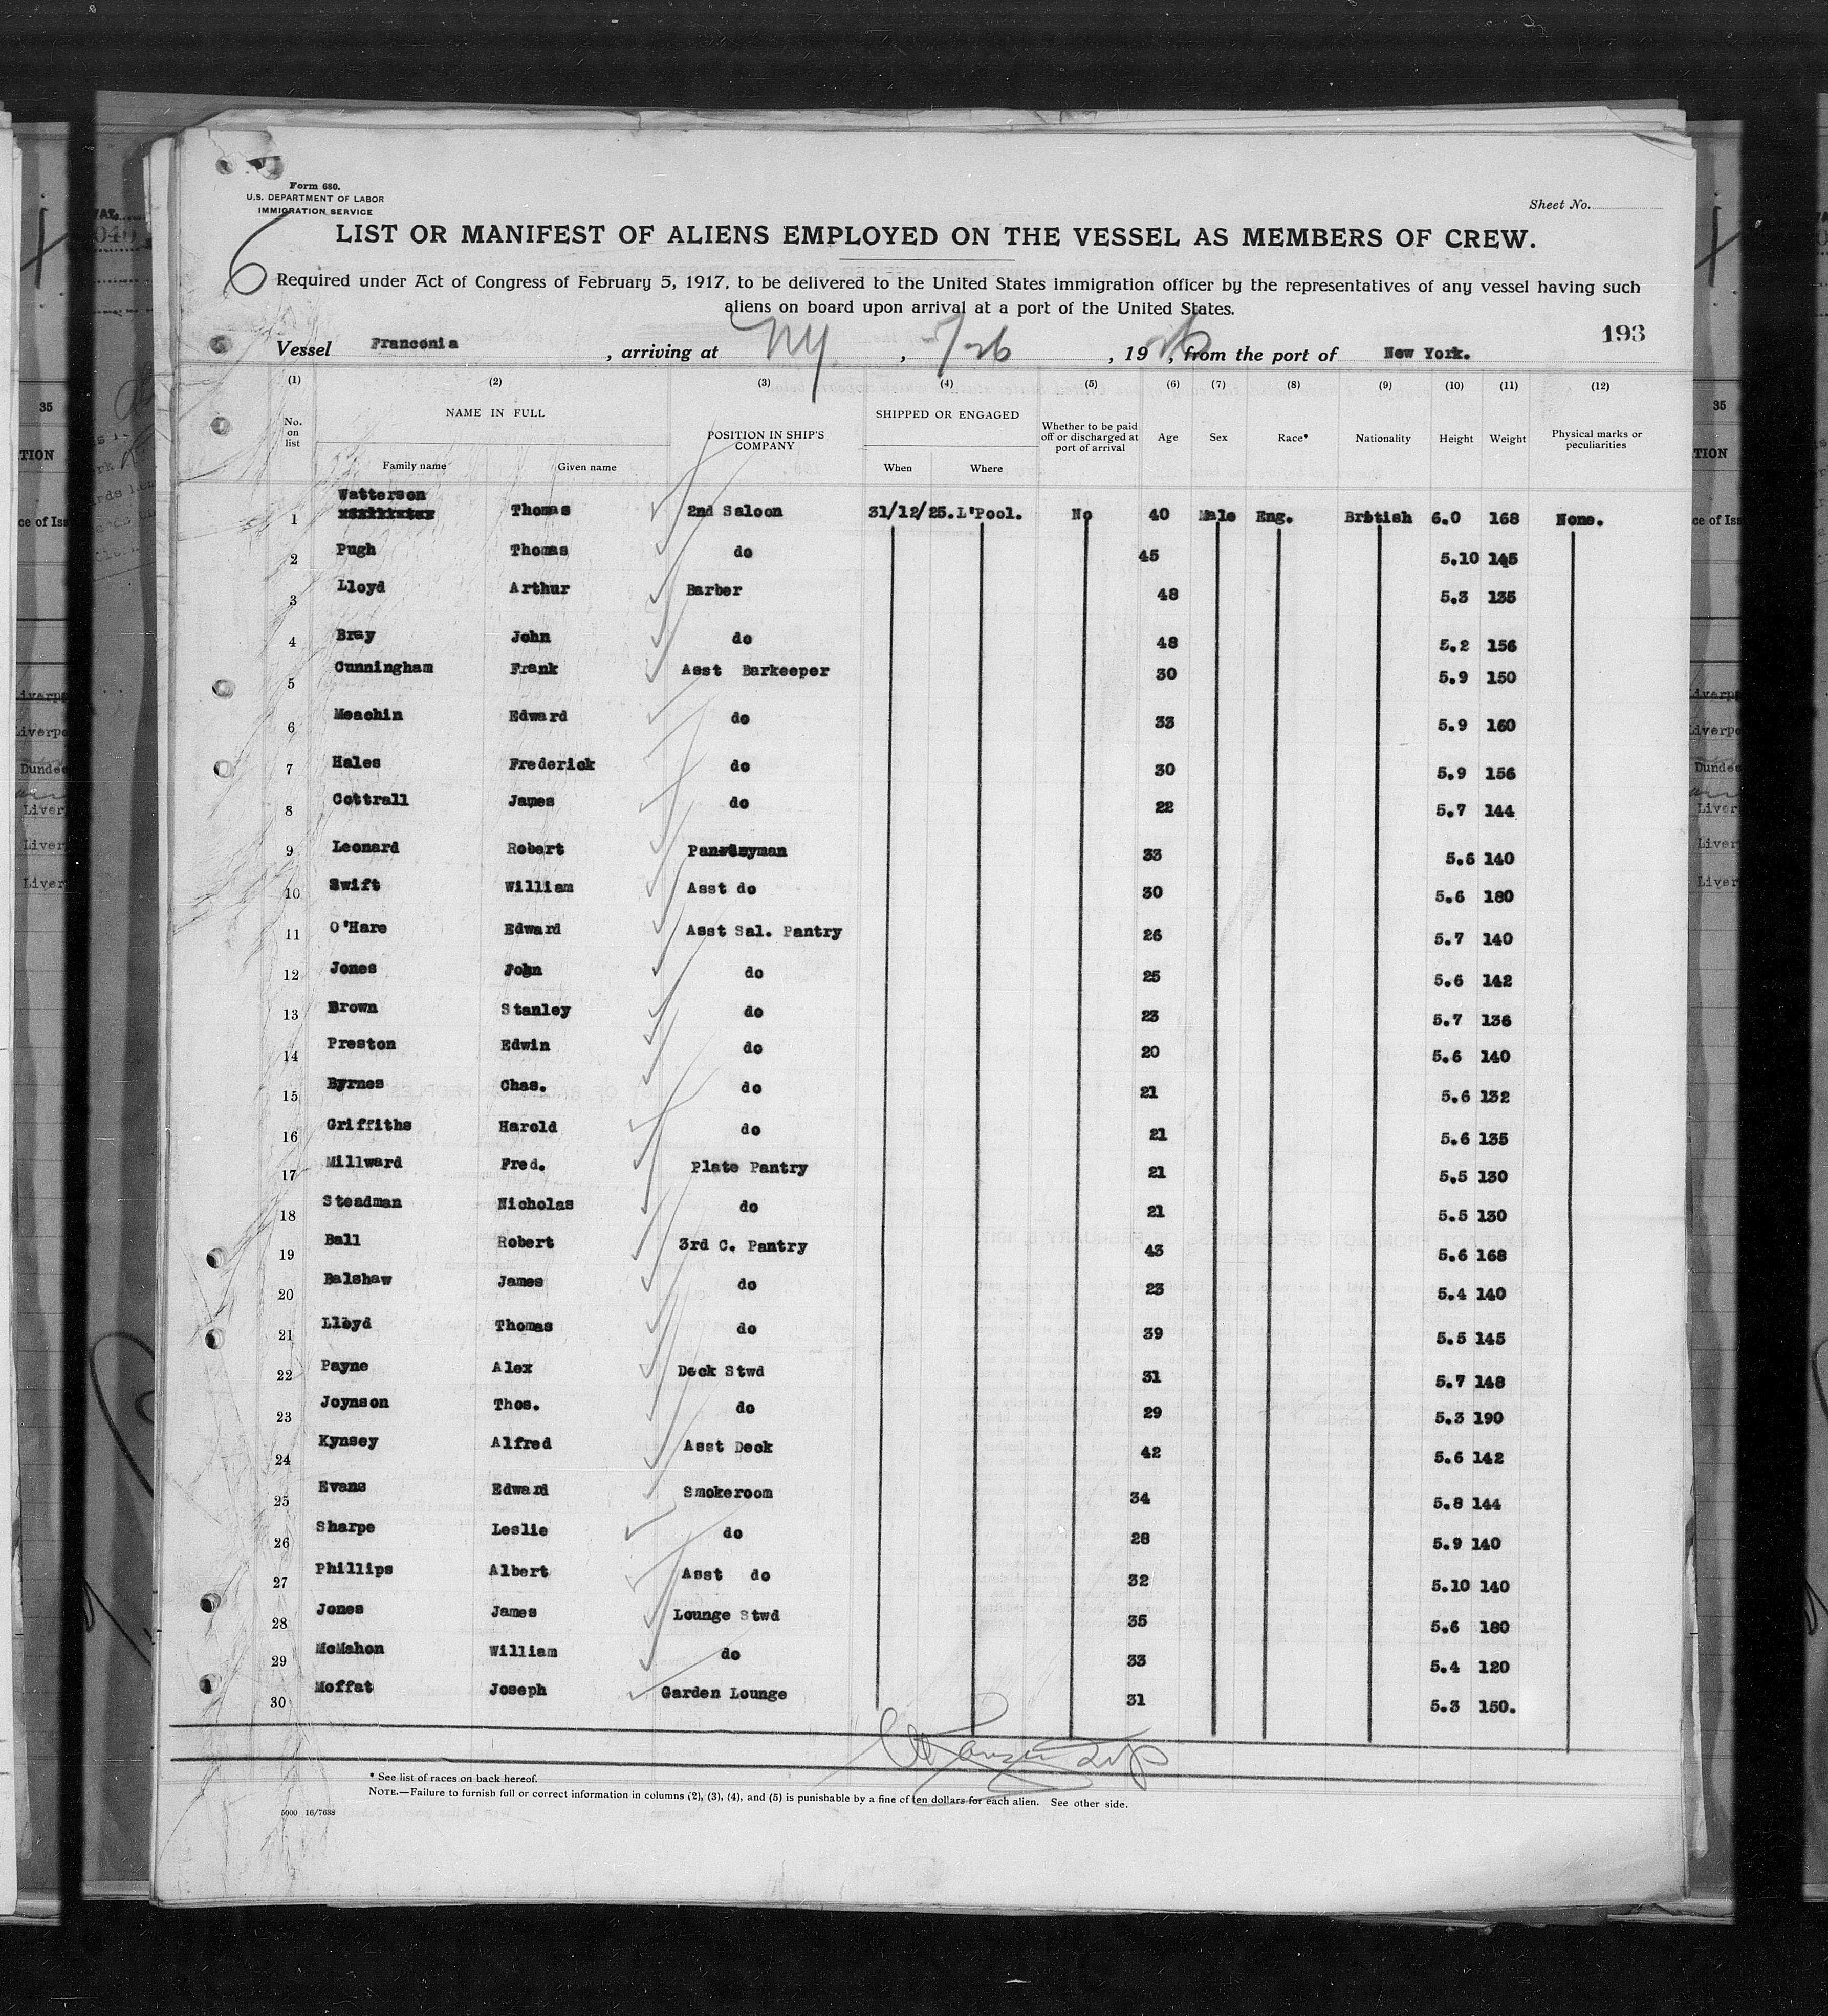 Form 680.
U.S. DEPARTMENT OF LABOR
IMMIGRATION SERVICE
Sheet No.
LIST OR MANIFEST OF ALIENS EMPLOYED ON THE VESSEL AS MEMBERS OF CREW.
6
Required under Act of Congress of February 5, 1917, to be delivered to the United States immigration officer by the representatives of any vessel having such
aliens on board upon arrival at a port of the United States.
193
Vessel Franconia, arriving at NY, , 19 , from the port of New York.
(1) (2) (3) (4) (5) (6) (7) (8) (9) (10) (11) (12)
No. on list NAME IN FULL Family name Given name POSITION IN SHIP'S COMPANY SHIPPED OR ENGAGED When Where Whether to be paid off or discharged at port of arrival Age Sex Race* Nationality Height Weight Physical marks or peculiarities
1 Watterson Thomas 2nd Saloon 31/12/25. L'Pool. No 40 Male Eng. British 6.0 168 None.
2 Pugh Thomas do 45 5.10 145
3 Lloyd Arthur Barber 48 5.3 135
4 Bray John do 48 5.2 156
5 Cunningham Frank Asst Barkeeper 30 5.9 150
6 Meachin Edward do 33 5.9 160
7 Hales Frederick do 30 5.9 156
8 Cottrall James do 22 5.7 144
9 Leonard Robert Pantryman 33 5.6 140
10 Swift William Asst do 30 5.6 180
11 O'Hare Edward Asst Sal. Pantry 26 5.7 140
12 Jones John do 25 5.6 142
13 Brown Stanley do 23 5.7 136
14 Preston Edwin do 20 5.6 140
15 Byrnes Chas. do 21 5.6 132
16 Griffiths Harold do 21 5.6 135
17 Millward Fred. Plate Pantry 21 5.5 130
18 Steadman Nicholas do 21 5.5 130
19 Ball Robert 3rd C. Pantry 43 5.6 168
20 Balshaw James do 23 5.4 140
21 Lloyd Thomas do 39 5.5 145
22 Payne Alex Deck Stwd 31 5.7 148
23 Joynson Thos. do 29 5.3 190
24 Kynsey Alfred Asst Deck 42 5.6 142
25 Evans Edward Smokeroom 34 5.8 144
26 Sharpe Leslie do 28 5.9 140
27 Phillips Albert Asst do 32 5.10 140
28 Jones James Lounge Stwd 35 5.6 180
29 McMahon William do 33 5.4 120
30 Moffat Joseph Garden Lounge 31 5.3 150.
* See list of races on back hereof.
NOTE.—Failure to furnish full or correct information in columns (2), (3), (4), and (5) is punishable by a fine of ten dollars for each alien. See other side.
5000 16/7638